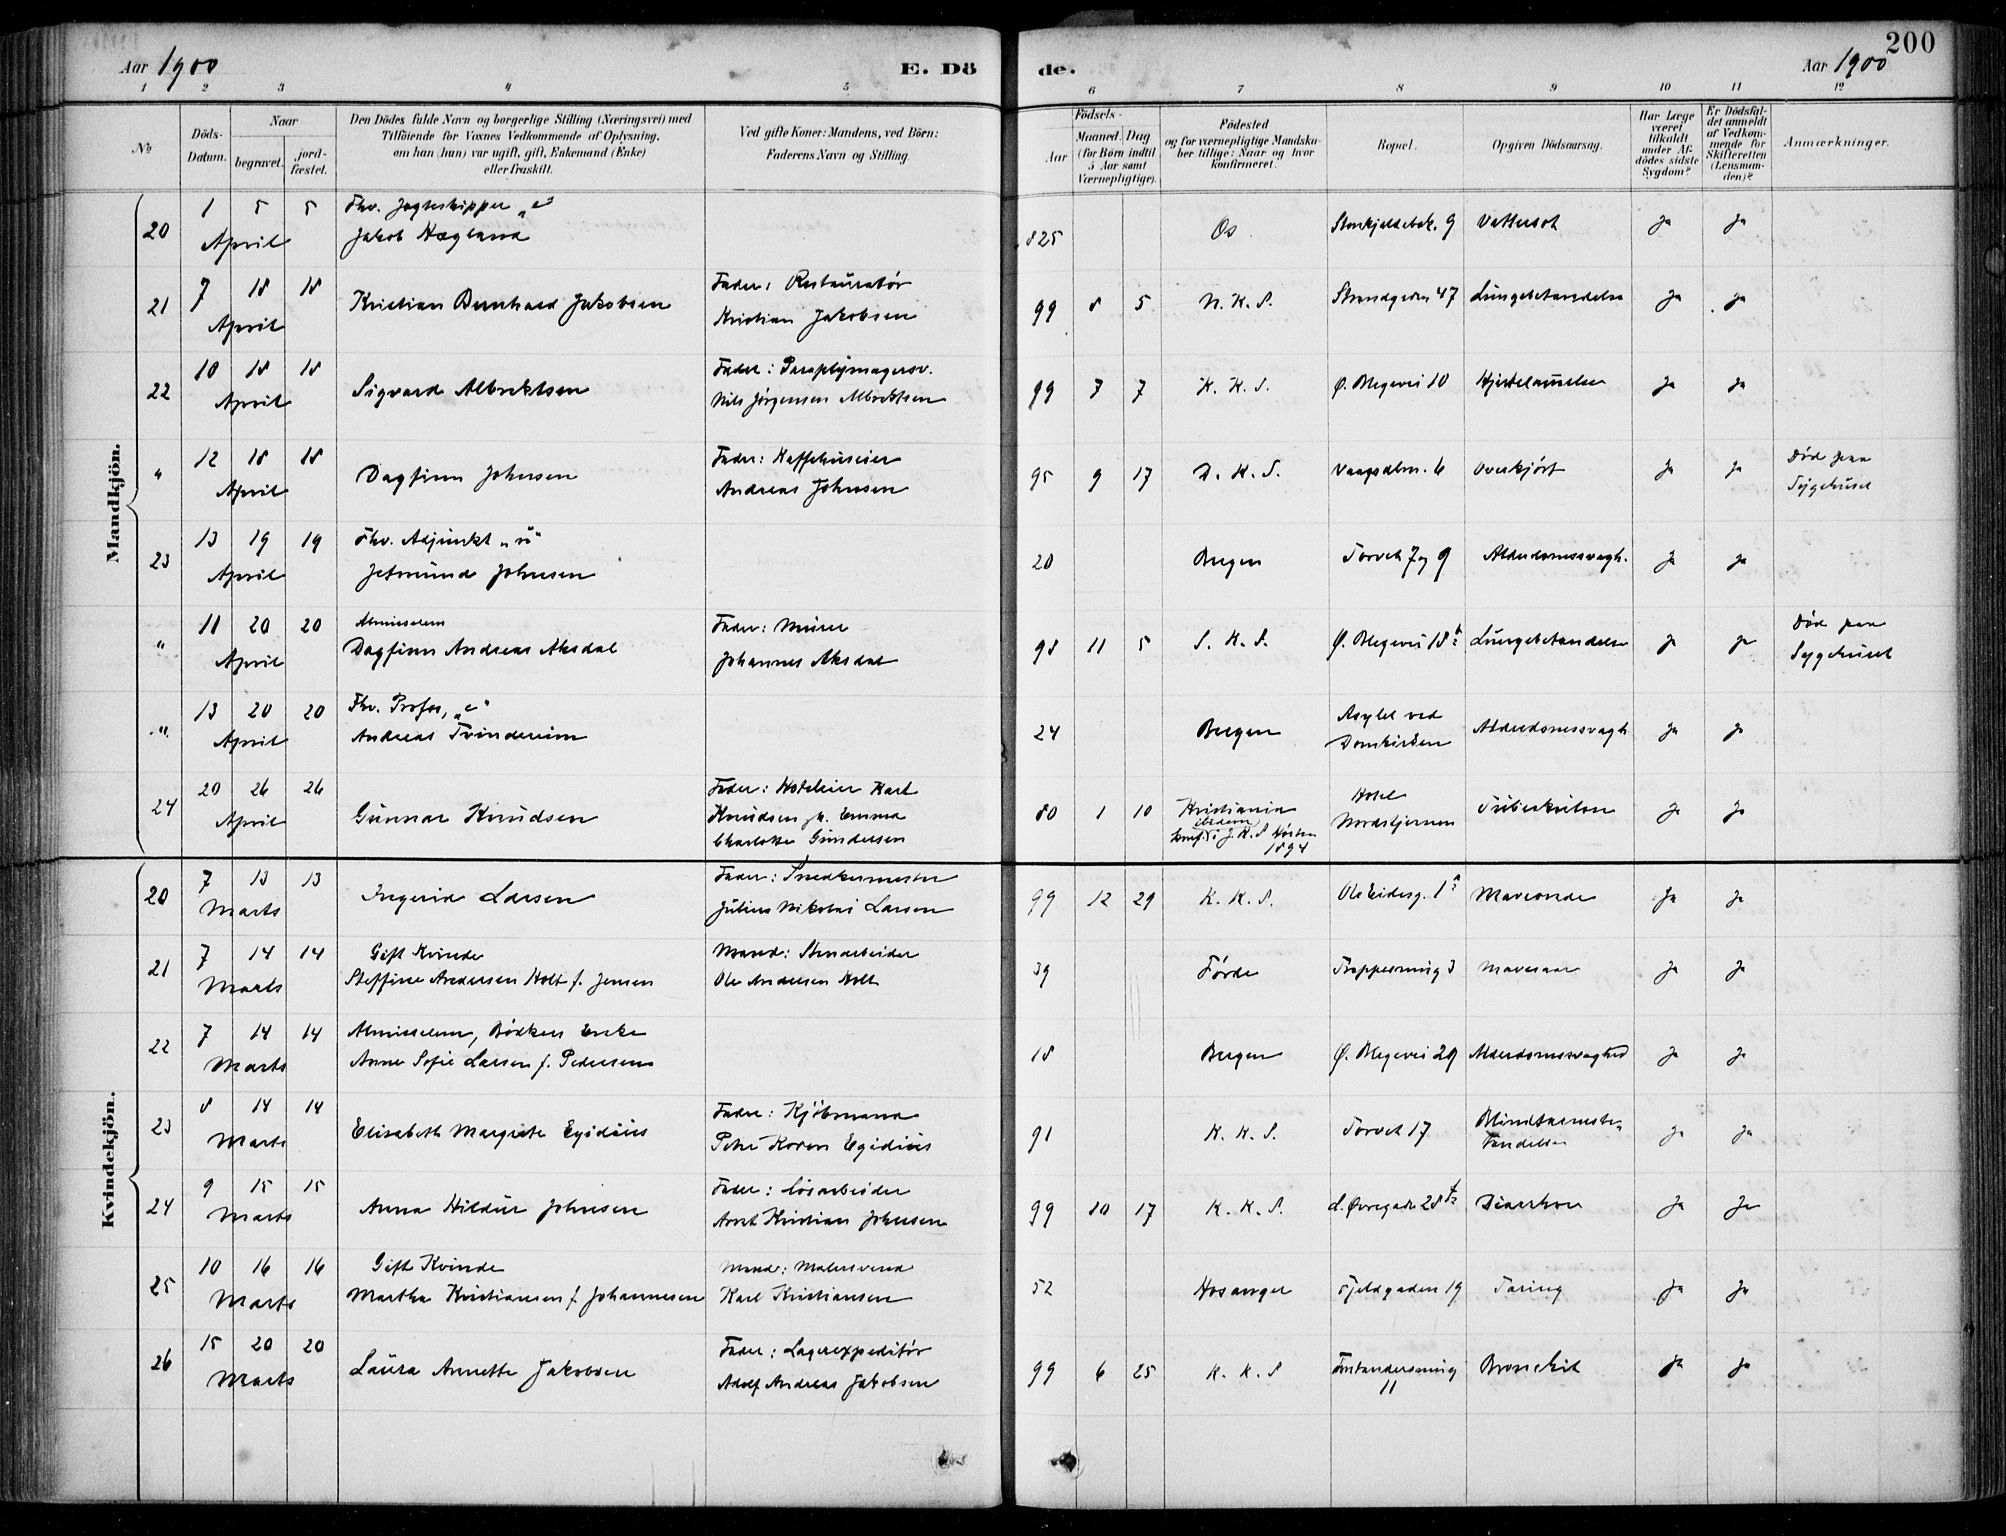 Aar 1900
E. Dö
de.
Aar 1900
200
1 2 3 4 5 6 7 8 9 10 11 12
No
Döds-Datum.
Naar
begravet.
jord-fæstet.
Den Dödes fulde Navn og borgerlige Stilling (Næringsvei) med
Tilföiende for Voxnes Vedkommende af Oplysning,
om han (hun) var ugift, gift, Enkemand (Enke)
eller fraskilt.
Ved gifte Koner: Mandens, ved Börn:
Faderens Navn og Stilling.
Födsels-
Aar
Maaned. Dag
(for Börn indtil
5 Aar samt
Værnepligtige).
Födested
og for værnepligtige Mandska-
ber tillige: Naar og hvor
konfirmeret.
Bopæl.
Opgiven Dödsaarsag.
Har Læge
været
tilkaldt
under Af-
dödes sidste
Sygdom?
Er Dödsfal-
det anmeldt
af Vedkom-
mende for
Skifteretten
(Lensman-
den)?
Anmærkninger.
Mandkjön.
20 1 5 5 April Fhv. Jagteskipper "e" Jakob Hægland 825 Os 9 Vattersot ja ja
21 7 18 18 April Kristian Bernhard Jakobsen Fader: Restauratør Kristian Jakobsen 99 8 5 N. K. S. Strandgaden 47 Lungebetændelse ja ja
22 10 18 18 April Sigvard Albrektsen Fader: Paraplymagersv. Nils Jørgensen Albrektsen 99 7 7 K. K. S. Ø. Blegevei 10 Hjertelammelse ja ja
" 12 18 18 April Dagfinn Johnsen Fader: Kaffehuseier Andreas Johnsen 95 9 17 D. K. S. Vaagsalm. 6 Overkjørt ja ja Død paa Sygehuset
23 13 19 19 April Fhv. Adjunkt "u" Jetmund Johnsen 20 Bergen Torvet 7 og 9 Alderdomssvagh. ja ja
" 11 20 20 April Almisselem Dagfinn Andreas Aksdal Fader: Murer Johannes Aksdal 98 11 5 S. K. S. Ø. Blegevei 18 b Lungebetændelse ja ja Død paa Sygehuset
" 13 20 20 April Fhv. "e" Andreas Tvindereim 24 Bergen Asylet ved Domkirken Alderdomssvagh ja ja
24 20 26 26 April Gunnar Knudsen Fader: Hoteleier Karl Knudsen Emma Charlotte Gundersen 80 1 10 Kristiania J. K. S Høsten 1894 Hotel Nordstjernen Tuberkulose ja ja
Kvindekjön.
20 7 13 13 Marts Ingerid Larsen Fader: Snedkermester Julius Nikolai Larsen 99 12 29 K. K. S. Ole Eidesg. 1 a Maveonde ja ja
21 7 14 14 Marts Gift Kvinde Steffine Andersen Holt f. Jensen Mand: Stenarbeider Ole Andersen Holt 39 Førde Trappesmug 3 Mavesaar ja ja
22 7 14 14 Marts Almisselem, Bødkers Enke Anne Sofie Larsen f. Pedersen 18 Bergen Ø. Blegevei 29 Alderdomssvaghed ja ja
23 8 14 14 Marts Elisabeth Margrete Egidius Fader: Kjøbmand Peter Koren Egidius 91 K. K. S. Torvet 17 Blindtarmsbe-tændelse ja ja
24 9 15 15 Marts Anna Hildur Johnsen Fader: Løsarbeider Arnt Kristian Johnsen 99 10 17 K. K. S. L. Øvregade 28 b Diarrhoe ja ja
25 10 16 16 Marts Gift Kvinde Martha Kristiansen f. Johannesen Mand: Malersvend Karl Kristiansen 52 Hosanger Fjeldgaden 19 Tæring ja ja
26 15 20 20 Marts Laura Annette Jakobsen Fader: Lagerexpeditør Adolf Andreas Jakobsen 99 6 25 K. K. S Forstandersmug 11 Bronchit ja ja